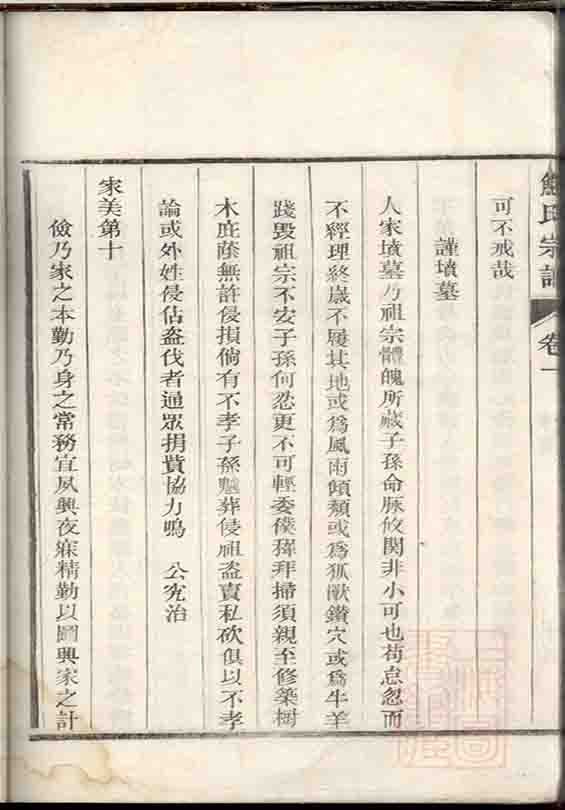 熊氏宗譜 卷一
可不戒哉
謹墳墓
人家墳墓乃祖宗體魄所藏子孫命脉攸関非小可也苟怠忽而
不經理終歲不履其地或爲風雨傾頹或爲狐獸鑽穴或爲牛羊
踐毀祖宗不安子孫何忍更不可輕委僕 拜掃須親至修築樹
木庇蔭無許侵損倘有不孝子孫 葬侵祖盗賣私砍俱以不孝
論或外姓侵佔盗伐者通眾捐貲協力鳴 公究治
家美第十
儉乃家之本勤乃身之常務宜夙興夜寐精勤以圖興家之計